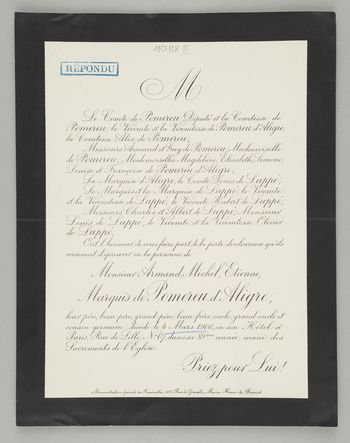 110 118 III
RÉPONDU
M
Le Comte de Pomereu, Député et la Comtesse de
Pomereu, le Vicomte et la Vicomtesse de Pomereu d'Aligre,
la Comtesse Alex de Pomereu,
Messieurs Armand et Guy de Pomereu, Mademoiselle
de Pomereu, Mesdemoiselles Magdeleine, Elisabeth, Simone,
Denise et Françoise de Pomereu d'Aligre,
La Marquise d'Aligre, le Comte Louis de Luppé,
Le Marquis et la Marquise de Luppé, le Vicomte
et la Vicomtesse de Luppé, le Vicomte Hubert de Luppé,
Messieurs Charles et Albert de Luppé, Monsieur
Louis de Luppé, le Vicomte et la Vicomtesse Olivier
de Luppé,
Ont l'honneur de vous faire part de la perte douloureuse qu'ils
viennent d'éprouver en la personne de
Monsieur Armand, Michel, Etienne,
Marquis de Pomereu d'Aligre,
leur père, beau-père, grand-père, beau-frère, oncle, grand-oncle et
cousin germain, décédé le 4 Mars 1906, en son Hôtel à
Paris, Rue de Lille, N° 67, dans sa année, muni des
Sacrements de l'Eglise.
Priez pour Lui!
Administration spéciale de Funérailles, Rue de Grenelle, Maison Henri de Borniol